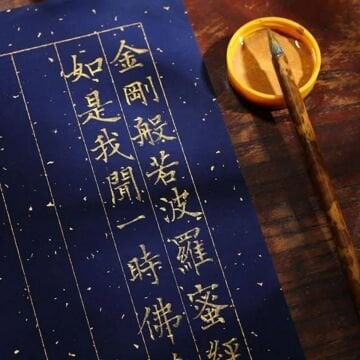 金剛般若波羅蜜經
如是我聞一時佛